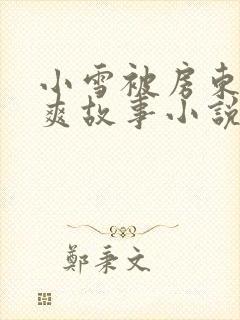 小雪被房东
爽故事小說
鄭秉文